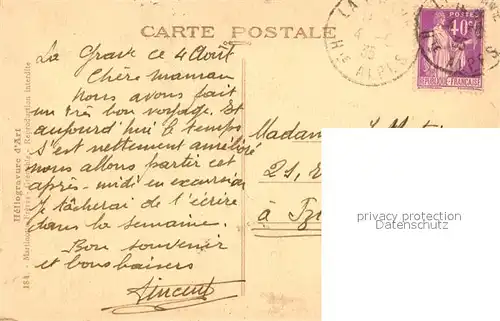 CARTE POSTALE
La Grave ce 4 Août
Chère maman
Nous avons fait
un très bon voyage. Et
aujourd'hui le temps
s'est nettement amélioré
nous allons partir cet
après-midi en excursion
Je tâcherai de t'écrire
dans la semaine.
Bon souvenir
et bons baisers
Vincent
Madame
21,
à
POSTES
40c
REPUBLIQUE FRANÇAISE
Hes ALPES
privacy protection
Datenschutz
184. -
Héliogravure d'Art
Reproduction interdite